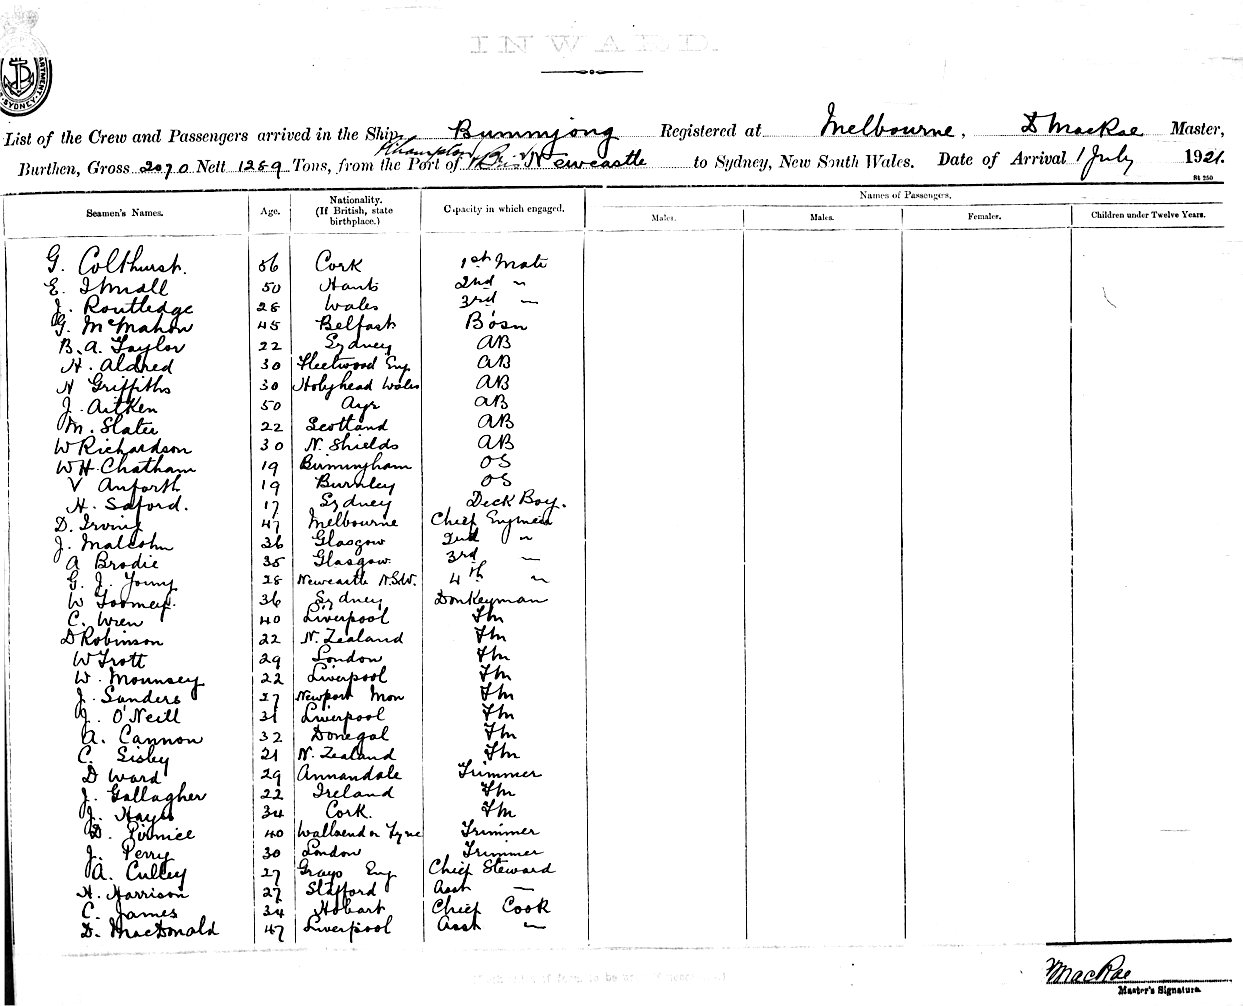 INWARD.
List of the Crew and Passengers arrived in the Ship Burnmjong Registered at Melbourne, D MacRae Master,
Burthen, Gross 2070 Nett 1289 Tons, from the Port of Newcastle to Sydney, New South Wales. Date of Arrival 1 July 1921.
St 250
Seamen's Names. Age. Nationality. (If British, state birthplace.) Capacity in which engaged. Names of Passengers.
Males. Males. Females. Children under Twelve Years.
G. Colthurst. 56 Cork 1st Mate
E. 50 Hants 2nd "
J. Routledge 28 Wales 3rd "
G. McMahon 45 Belfast Bosn
B. A. Taylor 22 Sydney AB
H. Aldred 30 Fleetwood Eng AB
H Griffiths 30 Holyhead Wales AB
J. Aitken 50 Ayr AB
M. Slater 22 Scotland AB
W Richardson 30 N. Shields AB
W H Chatham 19 Birmingham OS
V Anforth 19 Burnley OS
H. Saford. 17 Sydney Deck Boy.
D. Irving 47 Melbourne Chief Engineer
J. Malcolm 36 Glasgow 2nd "
A Brodie 35 Glasgow 3rd "
G. J. Young 28 Newcastle N.S.W. 4th "
W Toomey. 36 Sydney Donkeyman
C. Wren 40 Liverpool Fm
D Robinson 22 N. Zealand Fm
W Trott 29 London Fm
W. Mounsey 22 Liverpool Fm
J. Sanders 27 Newport Mon Fm
J. O'Neill 31 Liverpool Fm
A. Cannon 32 Donegal Fm
C. Sisley 21 N. Zealand Fm
D Ward 29 Annandale Trimmer
J. Gallagher 22 Ireland Fm
J. Hayes 34 Cork. Fm
D. 40 Wallsend on Tyne Trimmer
J. Perry 30 London Trimmer
A. Culley 27 Grays Eng Chief Steward
H. Harrison 27 Stafford Asst "
C. James 34 Hobart Chief Cook
D. MacDonald 47 Liverpool Asst "
MacRae
Master's Signature.